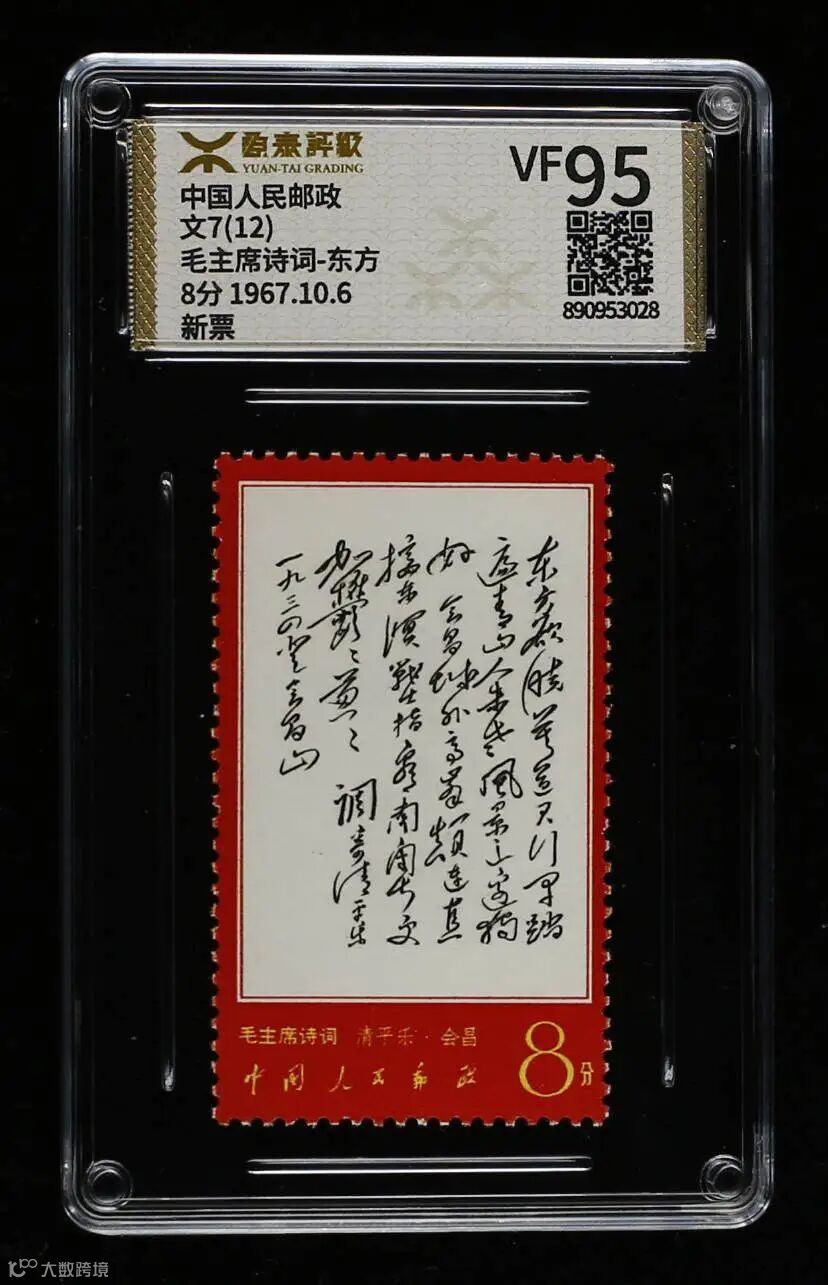 源泰評級
YUAN-TAI GRADING
VF95
中国人民邮政
文7(12)
毛主席诗词-东方
8分 1967.10.6
新票
890953028
东方欲晓莫道君行早踏
遍青山人未老风景这边独
好 会昌城外高峰颠连直
接东溟战士指看南粤更
加鬱々葱々 调寄清平乐
一九三四登会昌山
毛主席诗词 清平乐·会昌
中国人民邮政
8分
大数跨境